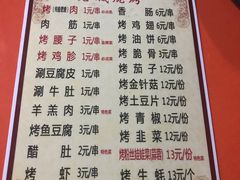 烧烤
烤肉 1元/串 香肠 6元/串
肉筋 1元/串 烤鱿鱼 6元/串
烤腰子 1元/串 烤油饼 6元/串
烤鸡胗 1元/串 烤脆骨 3元/串
涮豆腐皮 1元/串 烤茄子 12元/份
涮牛肚 1元/串 烤金针菇 12元/份
羊羔肉 3元/串 烤土豆片 10元/份
烤鱼豆腐 3元/串 烤青椒 12元/份
醋肚 2元/串 烤韭菜 12元/份
烤虾 3元/串 烤粉丝娃娃菜(蒜蓉) 13元/份
烤生蚝 13元/个